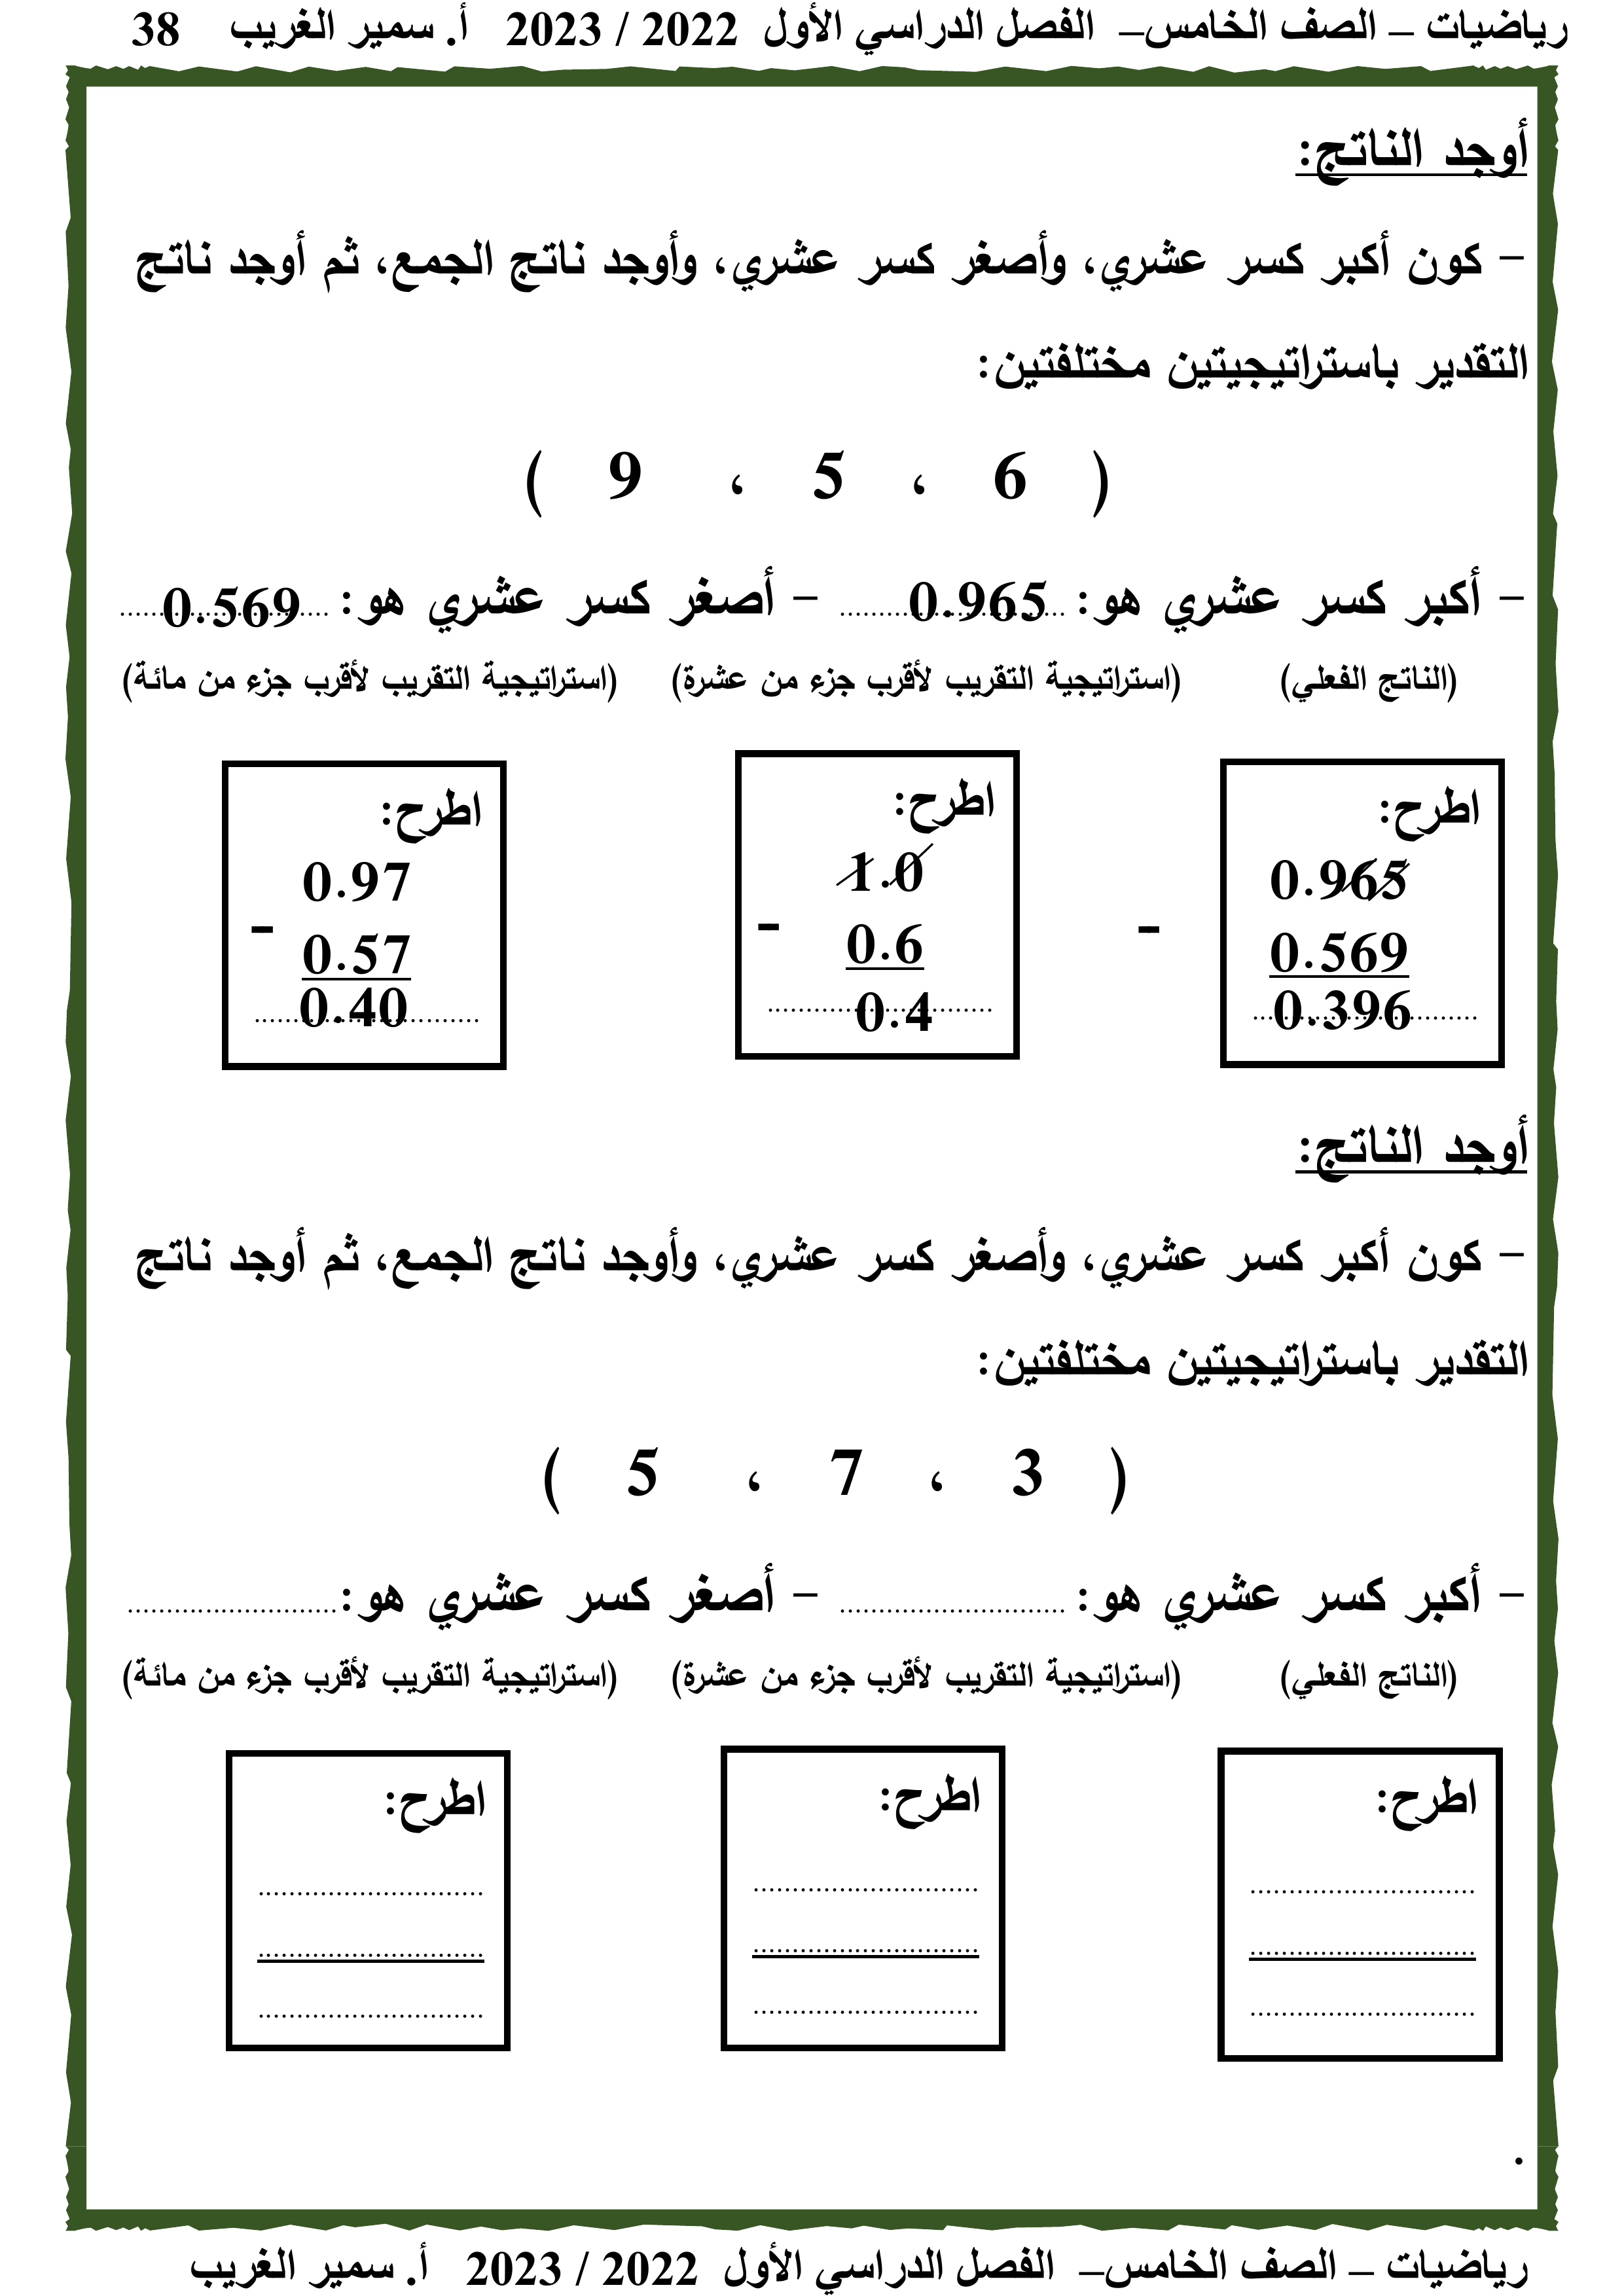 رياضيات – الصف الخامس– الفصل الدراسي الأول 2022 / 2023 أ. سمير الغريب 38
أوجد الناتج:
– كون أكبر كسر عشري، وأصغر كسر عشري، وأوجد ناتج الجمع، ثم أوجد ناتج
التقدير باستراتيجيتين مختلفتين:
( 6 ، 5 ، 9 )
– أكبر كسر عشري هو: 0.965 – أصغر كسر عشري هو: 0.569
(الناتج الفعلي) (استراتيجية التقريب لأقرب جزء من عشرة) (استراتيجية التقريب لأقرب جزء من مائة)
اطرح:
0.965
-
0.569
0.396
اطرح:
1.0
-
0.6
0.4
اطرح:
0.97
-
0.57
0.40
أوجد الناتج:
– كون أكبر كسر عشري، وأصغر كسر عشري، وأوجد ناتج الجمع، ثم أوجد ناتج
التقدير باستراتيجيتين مختلفتين:
( 3 ، 7 ، 5 )
– أكبر كسر عشري هو: .............................. – أصغر كسر عشري هو:..............................
(الناتج الفعلي) (استراتيجية التقريب لأقرب جزء من عشرة) (استراتيجية التقريب لأقرب جزء من مائة)
اطرح:
..............................
..............................
..............................
اطرح:
..............................
..............................
..............................
اطرح:
..............................
..............................
..............................
.
رياضيات – الصف الخامس– الفصل الدراسي الأول 2022 / 2023 أ. سمير الغريب